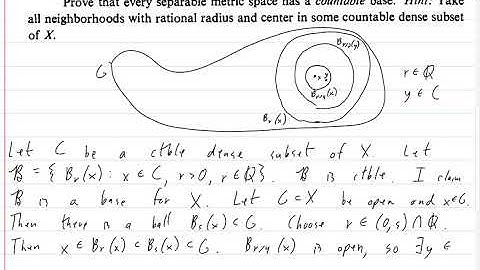 Prove that every separable metric space has a countable base. Hint: Take
all neighborhoods with rational radius and center in some countable dense subset
of X.
G
B r/2 (y)
x y
B r/4 (x)
B r (x)
r ∈ ℚ
y ∈ C
Let C be a ctble dense subset of X. Let
𝓑 = { B_r(x) : x ∈ C, r > 0, r ∈ ℚ}. 𝓑 is ctble. I claim
𝓑 is a base for X. Let G ⊂ X be open and x ∈ G.
Then there is a ball B_s(x) ⊂ G. Choose r ∈ (0, s) ∩ ℚ.
Then x ∈ B_r(x) ⊂ B_s(x) ⊂ G. B_{r/4}(x) is open, so ∃ y ∈